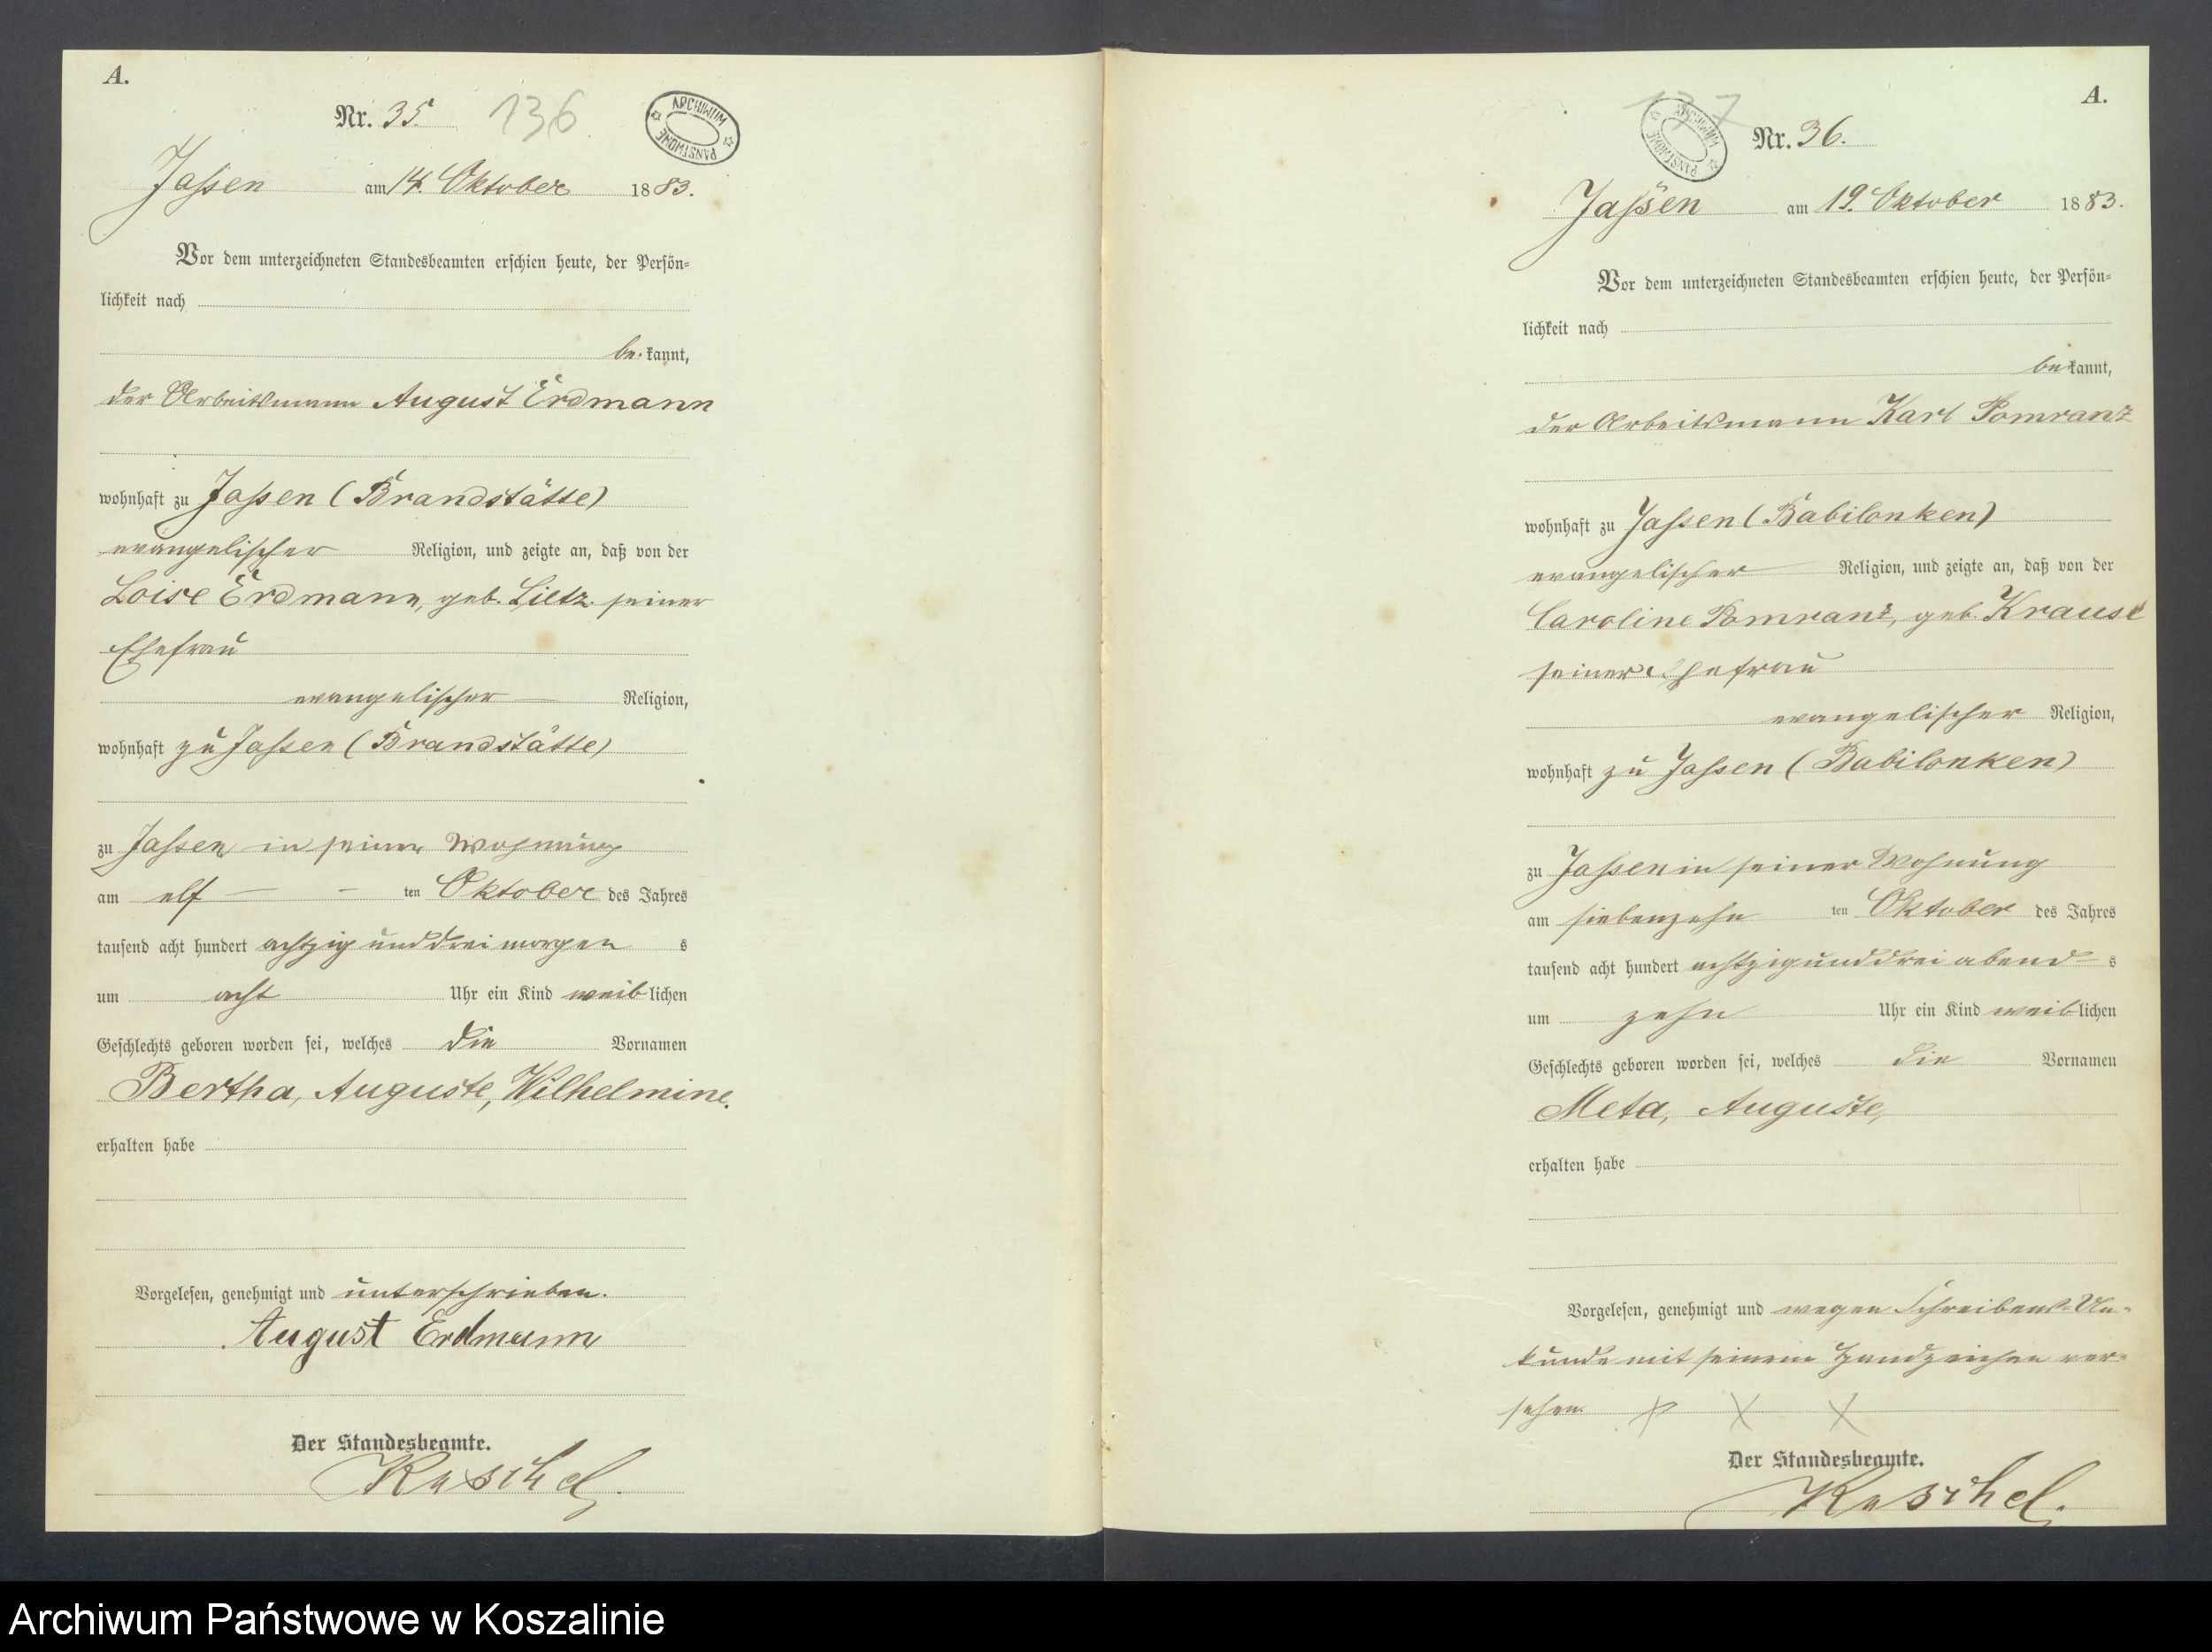 A.
Nr. 35. 136
ARCHIWUM PAŃSTWOWE
Jassen am 14. Oktober 1883.
Vor dem unterzeichneten Standesbeamten erschien heute, der Persön-
lichkeit nach
be- kannt,
der Arbeitsmann August Erdmann
wohnhaft zu Jassen (Brandstätte)
evangelischer Religion, und zeigte an, daß von der
Loise Erdmann, geb. Lietz seiner
Ehefrau
evangelischer Religion,
wohnhaft zu Jassen (Brandstätte)
zu Jassen in seiner Wohnung
am elf ten Oktober des Jahres
tausend acht hundert achtzig und drei morgen s
um acht Uhr ein Kind weiblichen
Geschlechts geboren worden sei, welches die Vornamen
Bertha, Auguste, Wilhelmine.
erhalten habe
Vorgelesen, genehmigt und unterschrieben.
August Erdmann
Der Standesbeamte.
A.
137
ARCHIWUM PAŃSTWOWE
Nr. 36.
Jassen am 19. Oktober 1883.
Vor dem unterzeichneten Standesbeamten erschien heute, der Persön-
lichkeit nach
bekannt,
der Arbeitsmann Karl Pomranz
wohnhaft zu Jassen (Babilonken)
evangelischer Religion, und zeigte an, daß von der
Caroline Pomranz, geb. Krause
seiner Ehefrau
evangelischer Religion,
wohnhaft zu Jassen (Babilonken)
zu Jassen in seiner Wohnung
am siebenzehn ten Oktober des Jahres
tausend acht hundert achtzig und drei abend s
um zehn Uhr ein Kind weiblichen
Geschlechts geboren worden sei, welches die Vornamen
Meta, Auguste,
erhalten habe
Vorgelesen, genehmigt und wegen Schreibens-Un-
kunde mit seinem Handzeichen ver-
sehen. X X X
Der Standesbeamte.
Archiwum Państwowe w Koszalinie